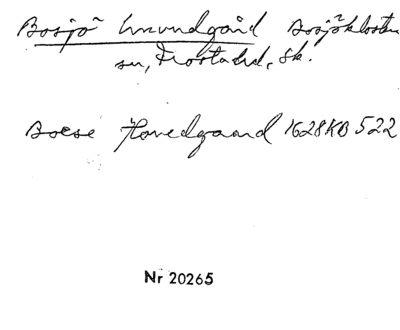 Bosjö huvudgård Bosjökloster
sn, Frosta hd, Sk.
Boese Hovedgaard 1628 KB 522
Nr 20265